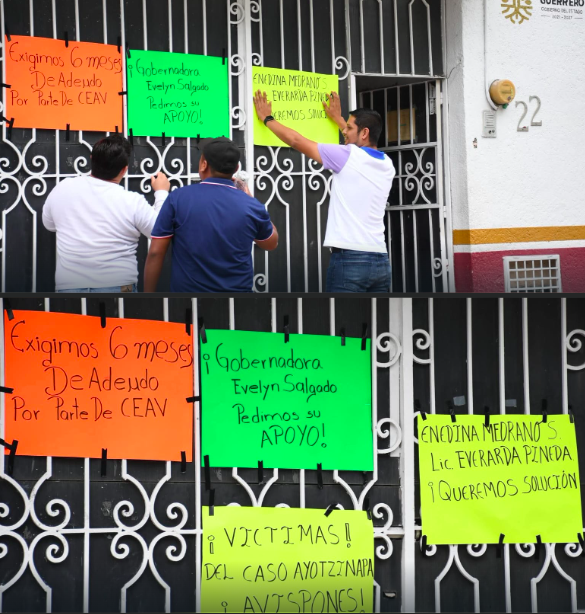 GUERRERO
GOBIERNO DEL ESTADO
2021 - 2027
22
Exigimos 6 meses
De Adeudo
Por Parte De CEAV
¡Gobernadora
Evelyn Salgado
Pedimos su
APOYO!
ENEDINA MEDRANO S.
LIC. EVERARDA PINEDA
QUEREMOS SOLUCIÓN
Exigimos 6 meses
De Adeudo
Por Parte De CEAV
¡Gobernadora
Evelyn Salgado
Pedimos su
APOYO!
ENEDINA MEDRANO S.
Lic. EVERARDA PINEDA
¡QUEREMOS SOLUCIÓN
¡VICTIMAS!
DEL CASO AYOTZINAPA
¡AVISPONES!